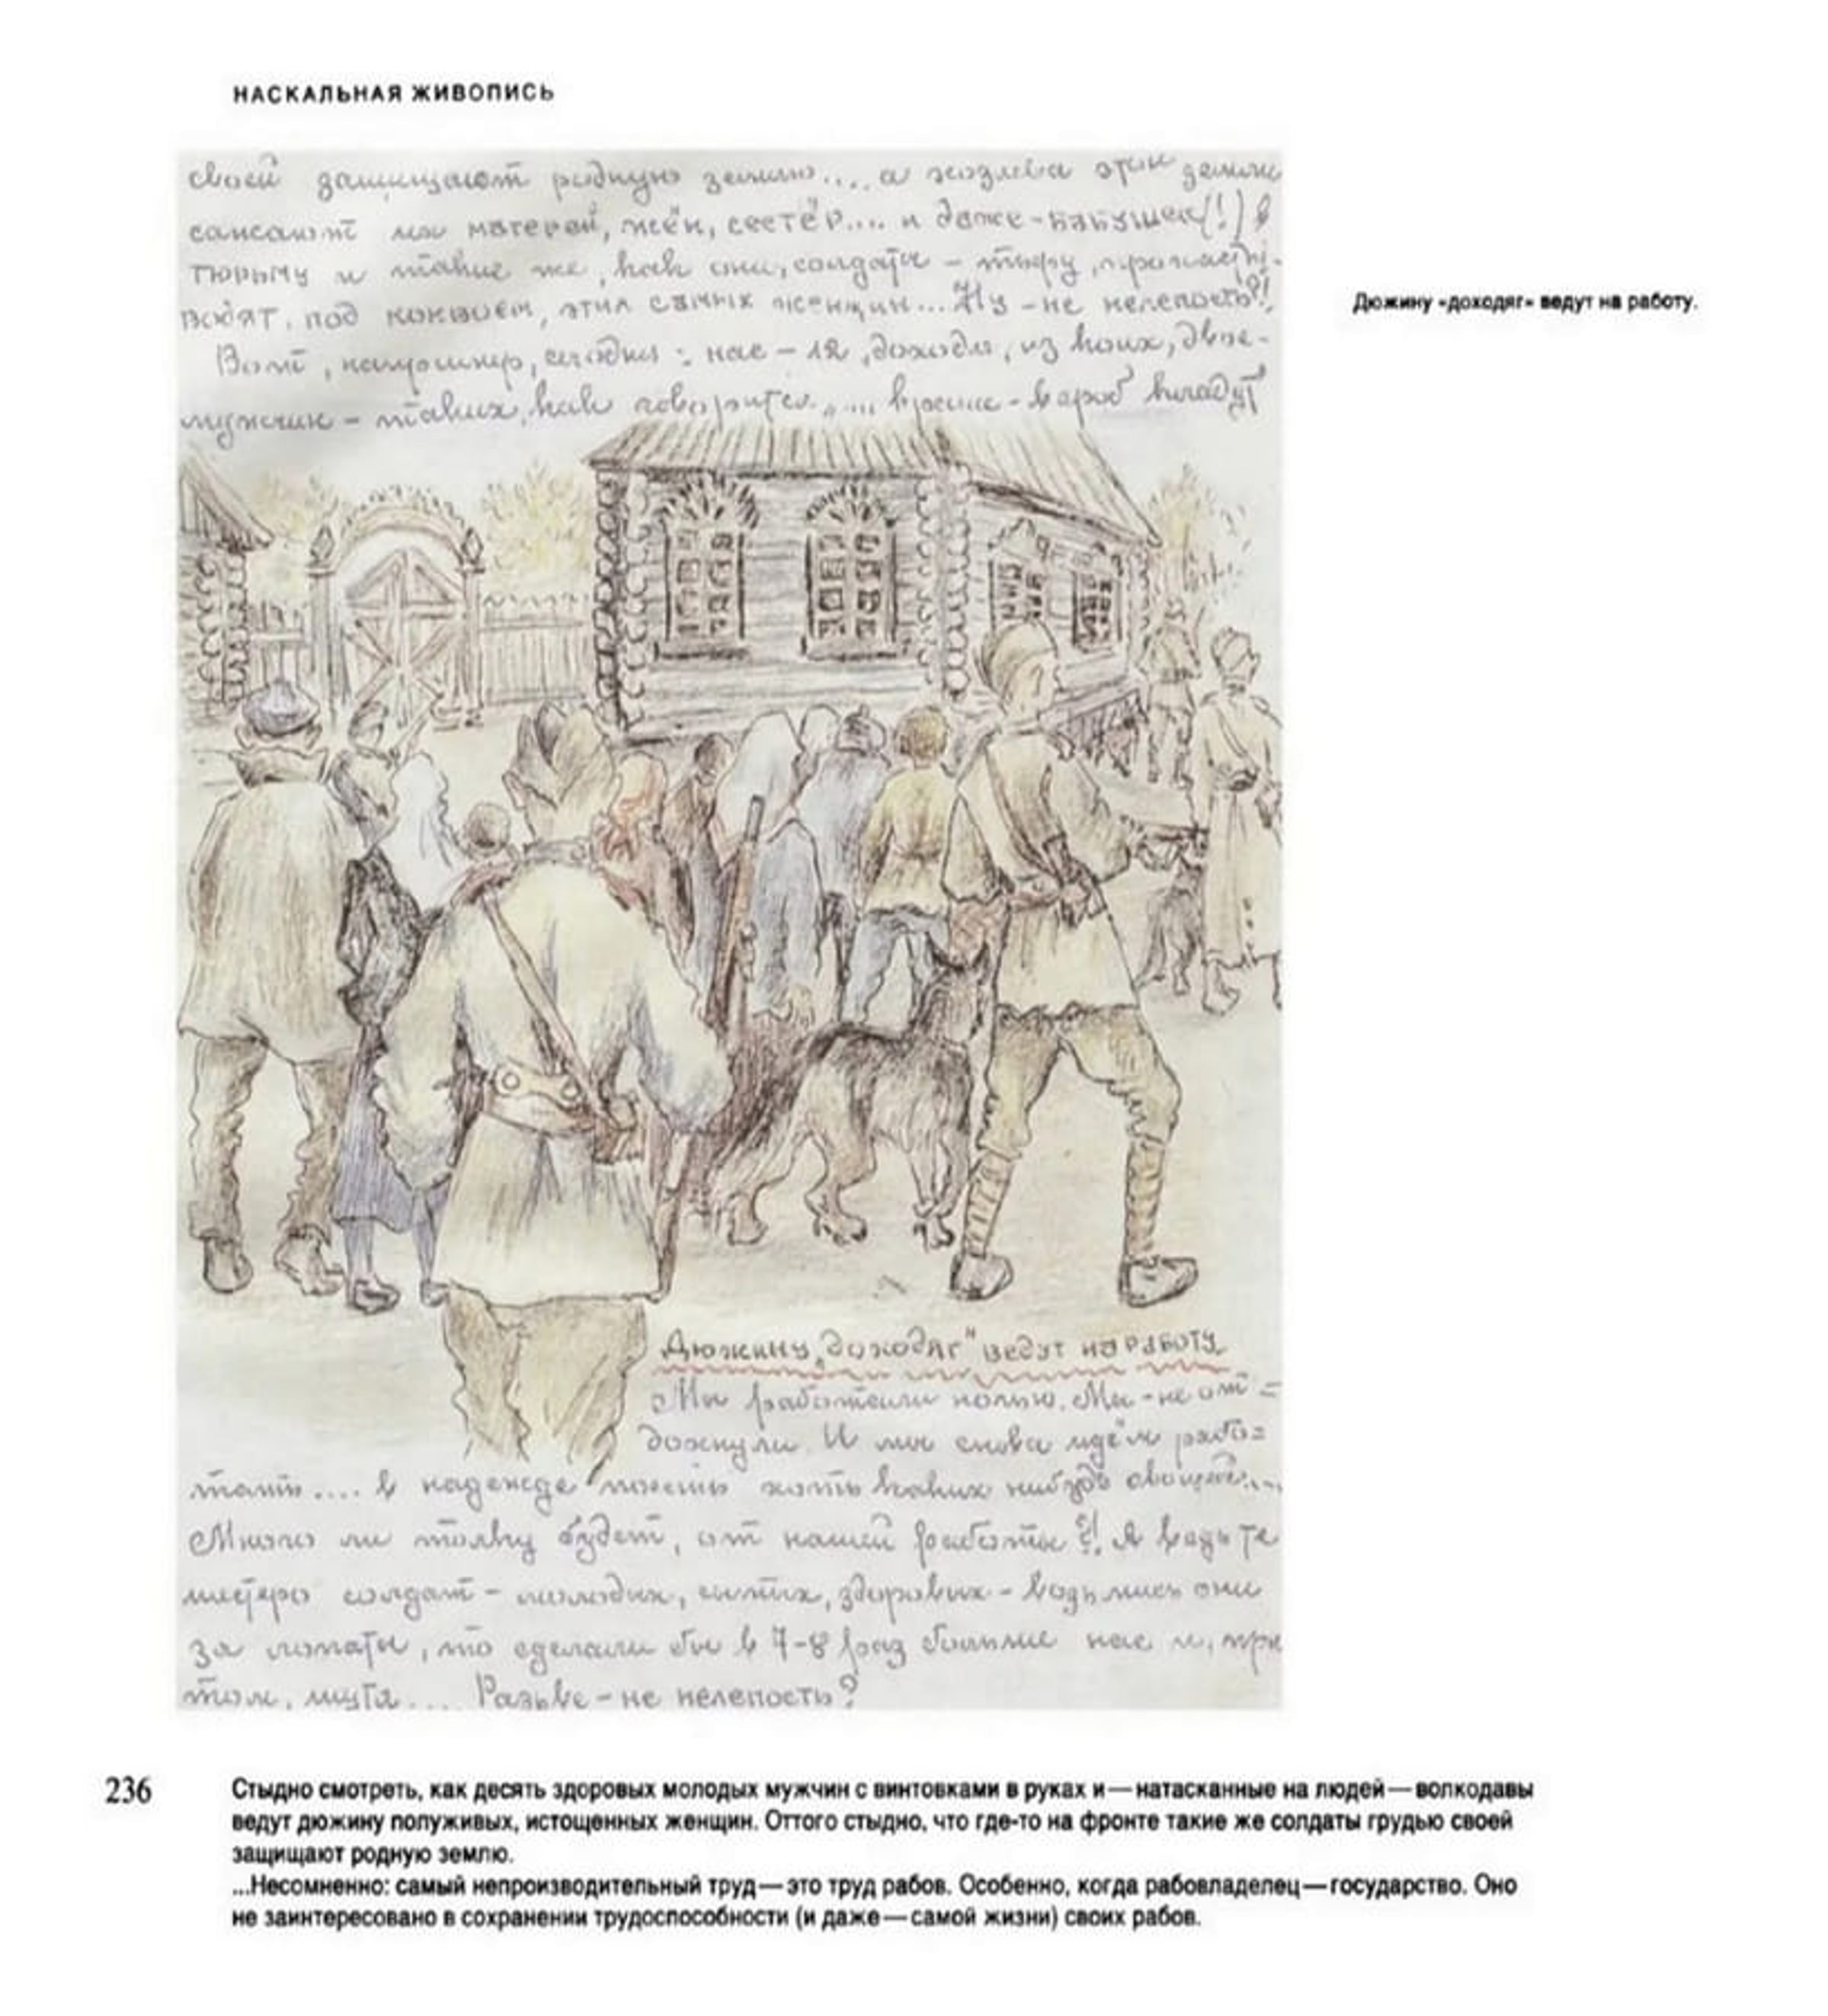 НАСКАЛЬНАЯ ЖИВОПИСЬ
своей защищают родную землю.... а хозяева этой земли
сажают их матерей, жён, сестёр.... и даже-бабушек(!) в
тюрьму и такие же, как они, солдаты -
водят, под конвоем, этих самых женщин... Ну-не нелепость?!
Вот, например, сегодня: нас-12 „доходяг, из коих, двое-
мужчин-таких, как говорится, „... краше-в гроб кладут
Дюжину «доходяг» ведут на работу.
Дюжину „доходяг" ведут на работу
Мы работали ночью. Мы-не от=
дохнули. И мы снова идём рабо=
тать.... в надежде поесть хоть каких нибудь овощей....
Много ли толку будет, от нашей работы?! А ведь те
солдат-молодых, сытых, здоровых-возьмись они
за лопаты, то сделали бы в 7-8 раз больше нас и, при
том, шутя.... Разьве-не нелепость?
236
Стыдно смотреть, как десять здоровых молодых мужчин с винтовками в руках и—натасканные на людей—волкодавы
ведут дюжину полуживых, истощенных женщин. Оттого стыдно, что где-то на фронте такие же солдаты грудью своей
защищают родную землю.
...Несомненно: самый непроизводительный труд—это труд рабов. Особенно, когда рабовладелец—государство. Оно
не заинтересовано в сохранении трудоспособности (и даже—самой жизни) своих рабов.